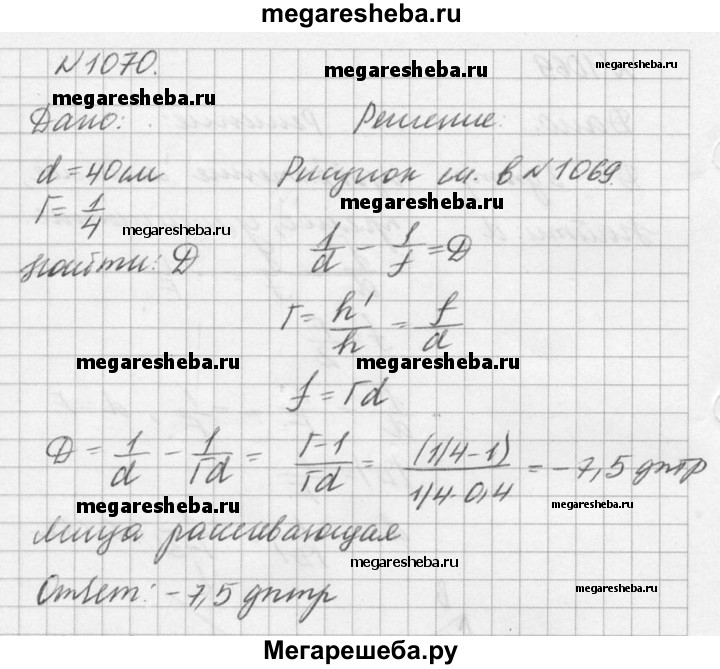 megaresheba.ru
№1070.
megaresheba.ru megaresheba.ru
megaresheba.ru
Дано: Решение:
d = 40 см Рисунок см. в №1069.
megaresheba.ru
Г = 1/4 megaresheba.ru
Найти: D 1/d - 1/f = D
Г = h'/h = f/d
megaresheba.ru megaresheba.ru
f = Гd
D = 1/d - 1/Гd = Г-1/Гd = (1/4-1)/1/4·0,4 = -7,5 дптр
megaresheba.ru megaresheba.ru
Линза рассеивающая
megaresheba.ru
Ответ: -7,5 дптр megaresheba.ru
Мегарешеба.ру